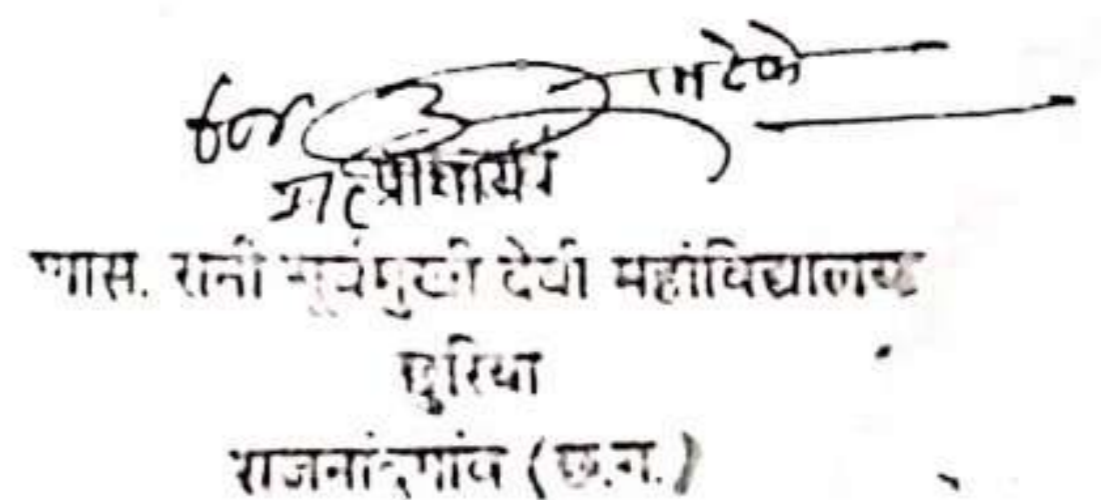 for
प्राचार्य
शास. रानी सूर्यमुखी देवी महाविद्यालय
छुरिया
राजनांदगांव (छ.ग.)